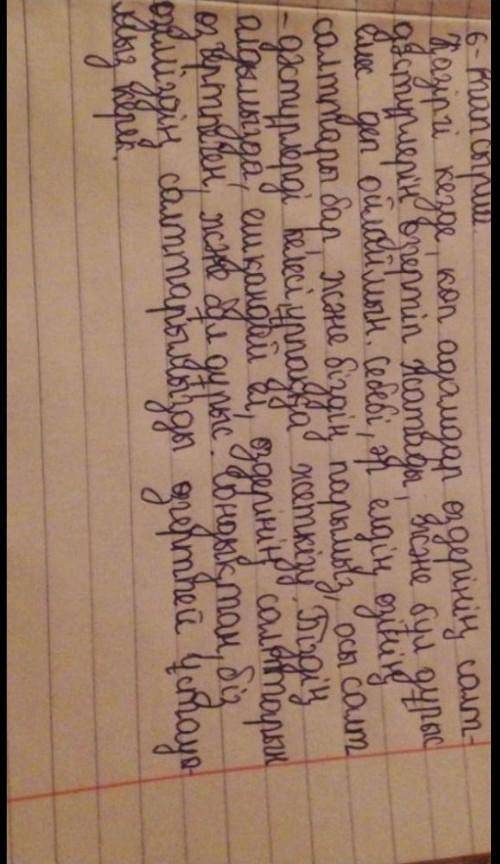 6-тапсырма.
Қазіргі кезде, көп адамдар өздерінің салт-
дәстүрлерін өзгертіп жатады, және бұл дұрыс
емес деп ойлаймын. Себебі, әр елдің өзінің
салттары бар және біздің парымыз, осы салт
-дәстүрлерді келесі ұрпаққа жеткізу. Біздің
алдымызда, ешқандай ел, өздерінің салттарын
өзгертпеген, және бұл дұрыс. Сондықтан, біз
өзіміздің салттарымызды өзгертпей ұстауы-
мыз керек.